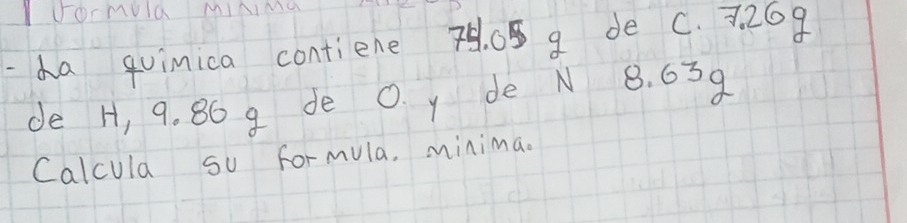 Formula Minima
- La química contiene 74.05 g de C. 7.26g
de H, 9.86 g de O. y de N 8.63g
Calcula su formula. minima.